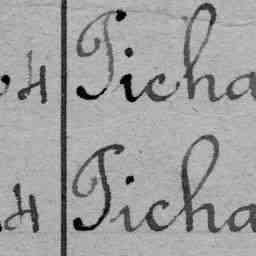 4 Ticha
4 Ticha